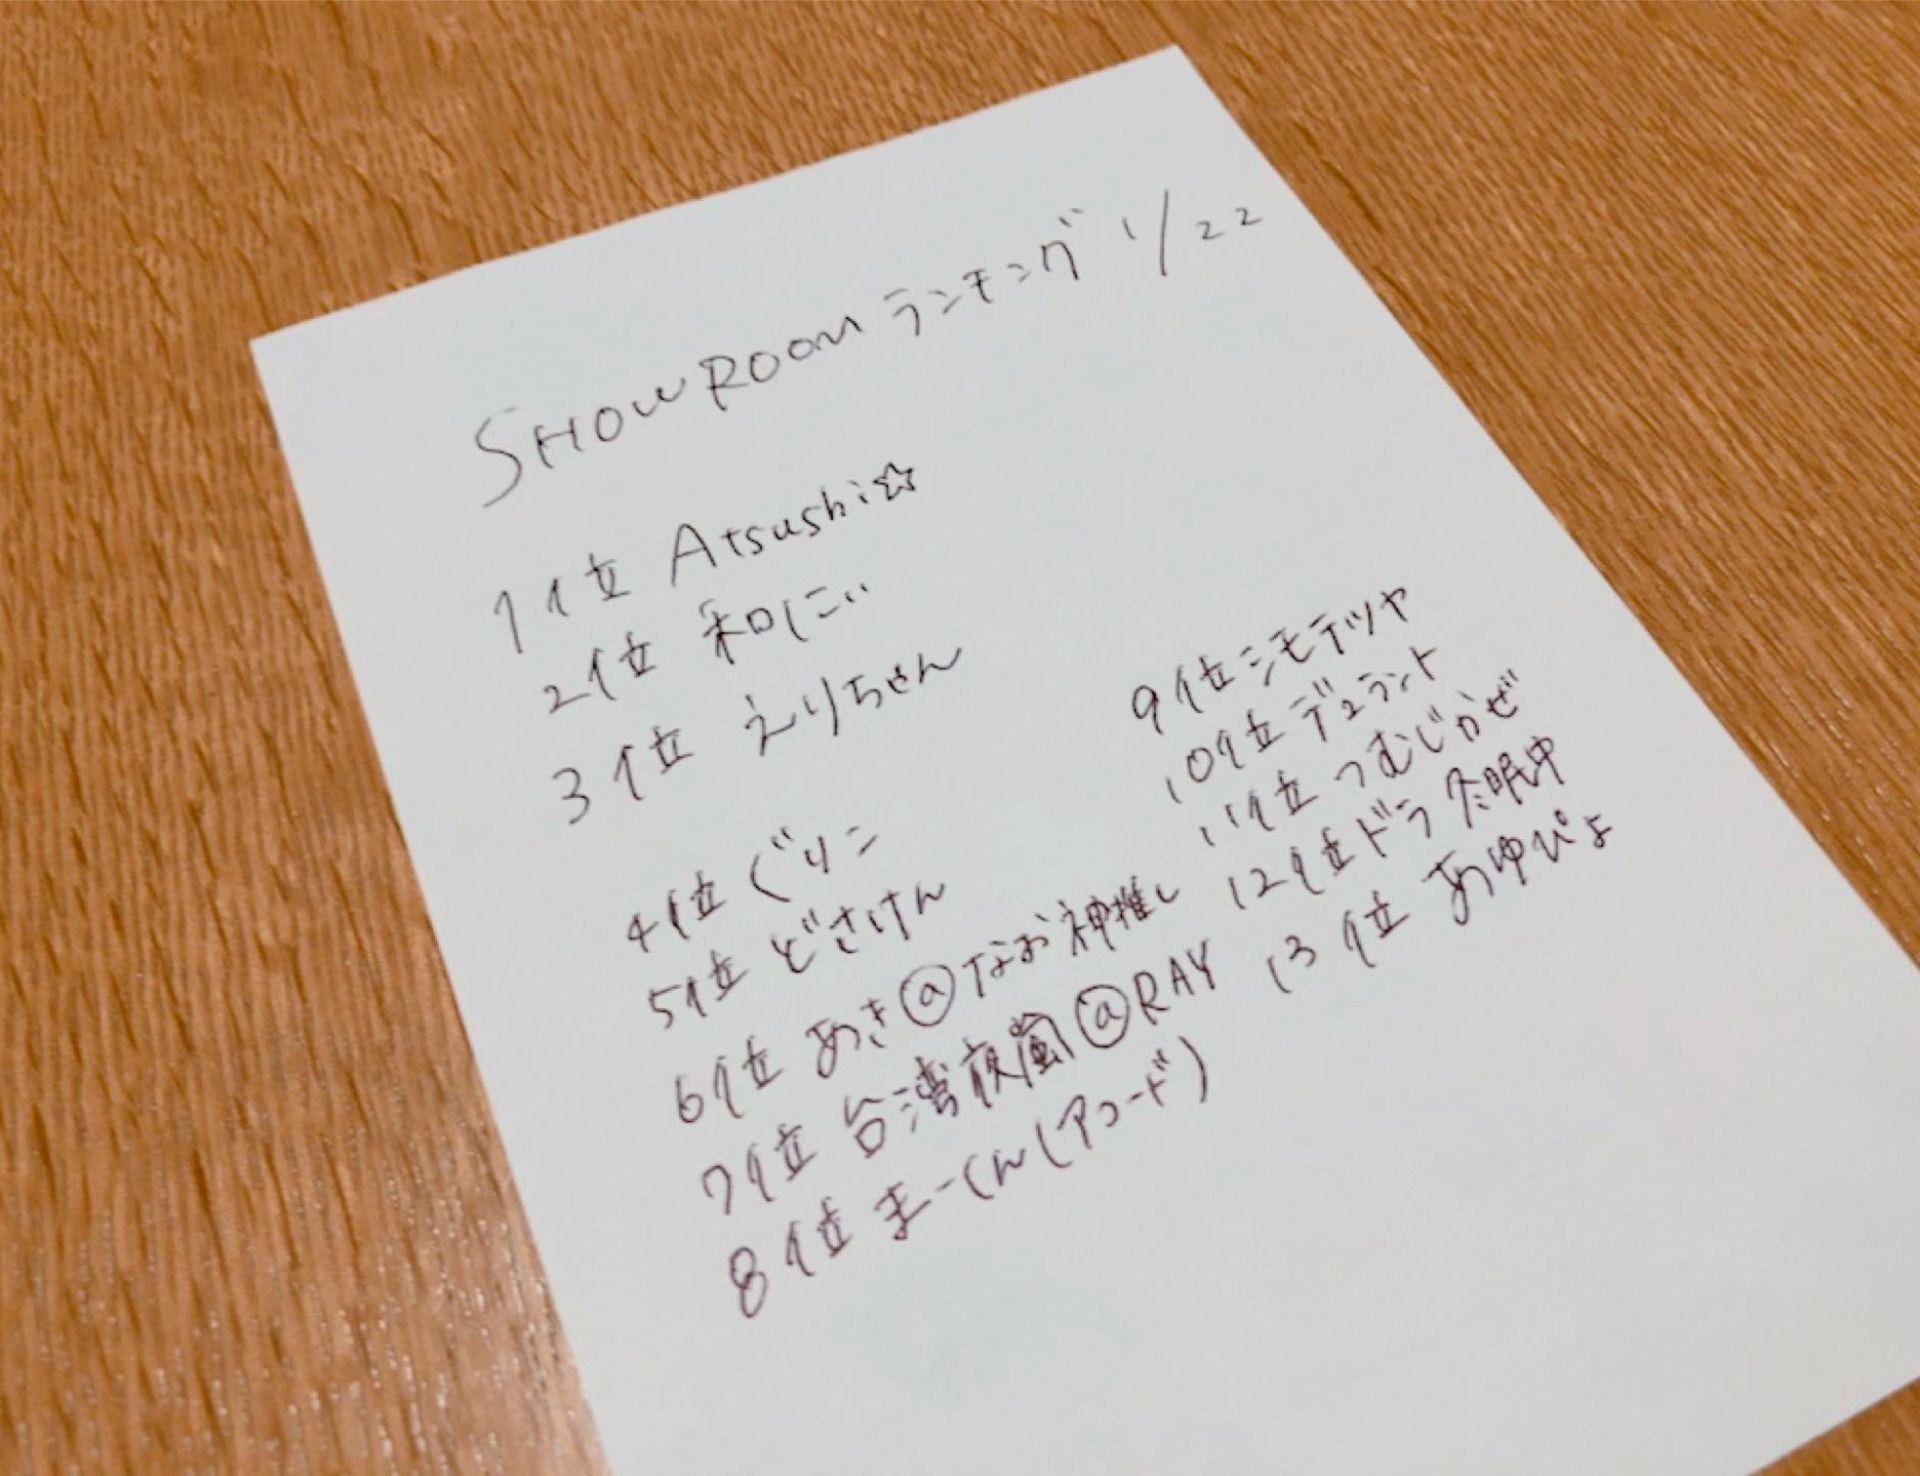 SHOWROOMランキング 1/22
1位 Atsushi☆
2位 和にい
3位 えりちゃん
4位 ぐりこ
5位 どさけん
6位 あき@なお神推し
7位 台湾夜嵐@RAY
8位 まーくん(アコード)
9位 シモテツヤ
10位 デュラント
11位 つむじかぜ
12位 ドラ 冬眠中
13位 あゆぴよ